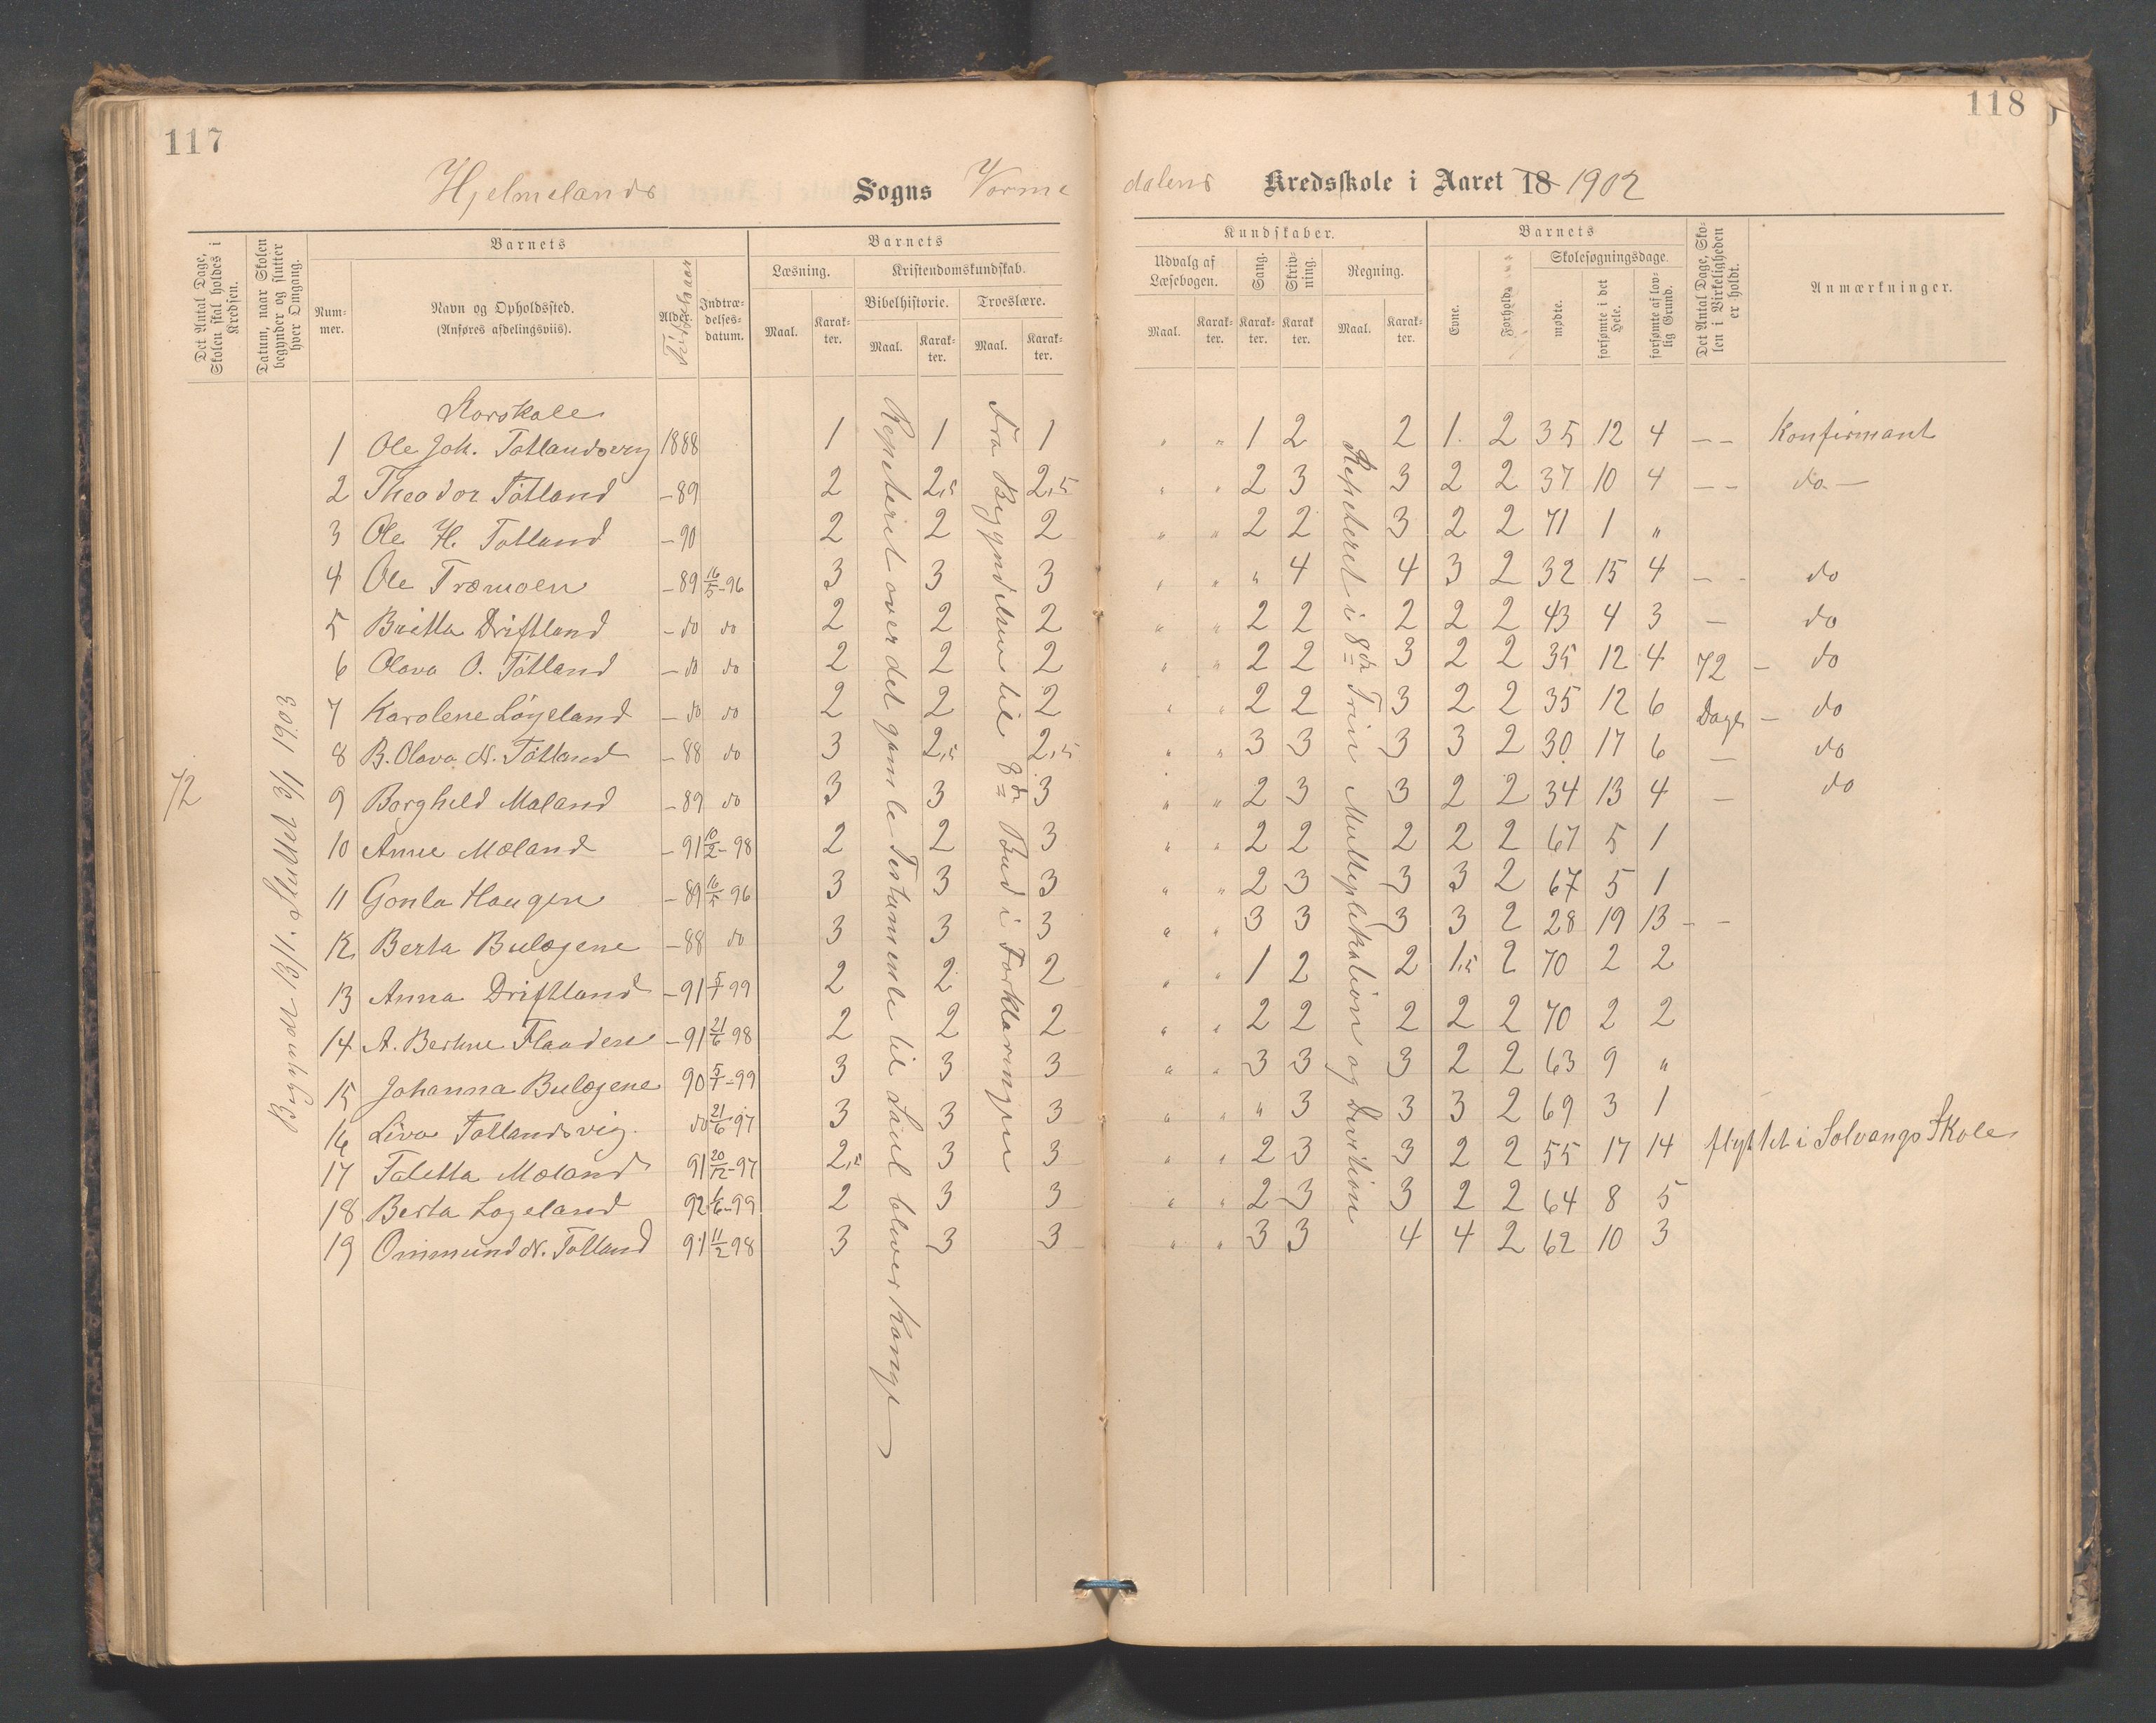 117
118
Hjelmelands Sogns Vorme dalens Kredsskole i Aaret 18 1902
Det Antal Dage, Skolen skal holdes i Kredsen.
Datum, naar Skolen begynder og slutter hver Omgang.
Barnets
Nummer.
Navn og Opholdssted.
(Anføres afdelingsviis).
Alder. Fødselsaar
Indtrædelsesdatum.
Barnets
Læsning.
Maal. Karakter.
Kristendomskundskab.
Bibelhistorie.
Maal. Karakter.
Troeslære.
Maal. Karakter.
Kundskaber.
Udvalg af Læsebogen.
Maal. Karakter.
Sang.
Karakter.
Skrivning.
Karakter.
Regning.
Maal. Karakter.
Barnets
Evne.
Forhold
Skolesøgningsdage.
mødte.
forsømte i det Hele.
forsømte af lovlig Grund.
Det Antal Dage, Skolen i Virkeligheden er holdt.
Anmærkninger.
72
Begyndt 13/1. Sluttet 3/1 1903
Storskole
1 Ole Joh. Tøtlandsvig 1888 1 1 1 " " 1 2 2 1 2 35 12 4 - - Konfirmant
2 Theodor Tøtland - 89 2 2,5 2,5 " " 2 3 3 2 2 37 10 4 - - do -
3 Ole H. Tøtland - 90 2 2 2 " " 2 2 3 2 2 71 1 "
4 Ole Træmoen - 89 16/5 - 96 3 3 3 " " " 4 4 3 2 32 15 4 - - do
5 Britta Driftland - do do 2 2 2 " " 2 2 2 2 2 43 4 3 - do
6 Olava O. Tøtland - do do 2 2 2 " " 2 2 3 2 2 35 12 4 72 - do
7 Karolene Løgeland - do do 2 2 2 " " 2 2 3 2 2 35 12 6 Dage - do
8 B. Olava N. Tøtland - 88 do 3 2,5 2,5 " " 3 3 3 3 2 30 17 6 - do
9 Borghild Mæland - 89 do 3 3 3 " " 2 3 3 2 2 34 13 4 - do
10 Anne Mæland - 91 10/2 - 98 2 2 3 " " 2 2 2 2 2 67 5 1
11 Gonla Haugen - 89 16/5 96 3 3 3 " " 2 3 3 3 2 67 5 1
12 Berta Bulægene - 88 do 3 3 3 " " 3 3 3 3 2 28 19 13 - -
13 Anna Driftland - 91 5/1 99 2 2 2 " " 1 2 2 1,5 2 70 2 2
14 A. Bertine Flaaden - 91 21/6 98 2 2 2 " " 2 2 2 2 2 70 2 2
15 Johanna Bulægene 90 5/1 - 99 3 3 3 " " 3 3 3 2 2 63 9 "
16 Liva Tøtlandsvig. do 21/6 97 3 3 3 " " " 3 3 3 2 69 3 1
17 Taletta Mæland 91 20/12 - 97 2,5 3 3 " " 2 3 3 2 2 55 17 14 flyttet i Solvangs Skole
18 Berta Løgeland 92 1/6 - 99 2 3 3 " " 2 3 3 2 2 64 8 5
19 Ommund N. Tøtland 91 11/2 98 3 3 3 " " 3 3 4 4 2 62 10 3
Repeteret over det gamle Testamente til Saul bliver Konge
Fra Begyndelsen til 8de Bud i Forklaringen
Repeteret i 8de Trin Multiplikation og Division